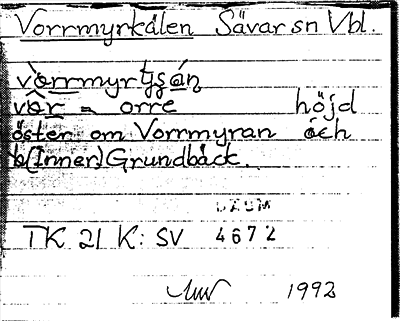 Vorrmyrkålen Sävar sn Vbl.
vòrrmyrtjsán
vôr = orre höjd
öster om Vorrmyran och
(Inner) Grundbäck.
DAUM
TK 21 K: SV 4672
1992